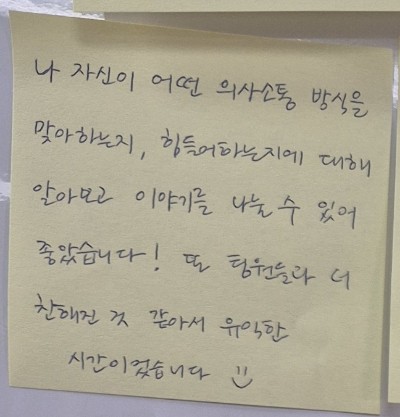 나 자신이 어떤 의사소통 방식을
맞아하는지, 힘들어하는지에 대해
알아보고 이야기를 나눌 수 있어
좋았습니다! 또 팀원들과 더
친해진 것 같아서 유익한
시간이었습니다 :)